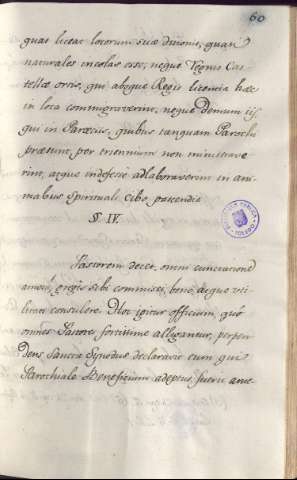 60
quas liceat locorum suæ ditionis, quam
naturales incolas esse, neque Regnis Cas-
tellæ ortis, qui absque Regis licentia hæc
in loca commigraverint, neque demum iis,
qui in Parœciis, quibus tanquam Parochi
præsunt, per triennium non ministrave
rint, atque indefessè adlaboraverint in ani-
mabus Spirituali cibo pascendis
§. IV.
Pastorem decet, omni cunctatione
amotâ, gregis sibi commissi, bono, aeque uti-
litati consulere. Hoc igitur officium, quò
omnes Pastores fortissime alligantur, perpen
dens Sancta Synodus declaravit eum qui
Parochiale Beneficium adeptus fuerit ante